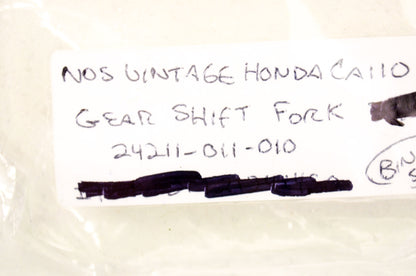 NOS VINTAGE HONDA CA110
GEAR SHIFT FORK
24211-011-010
BIN